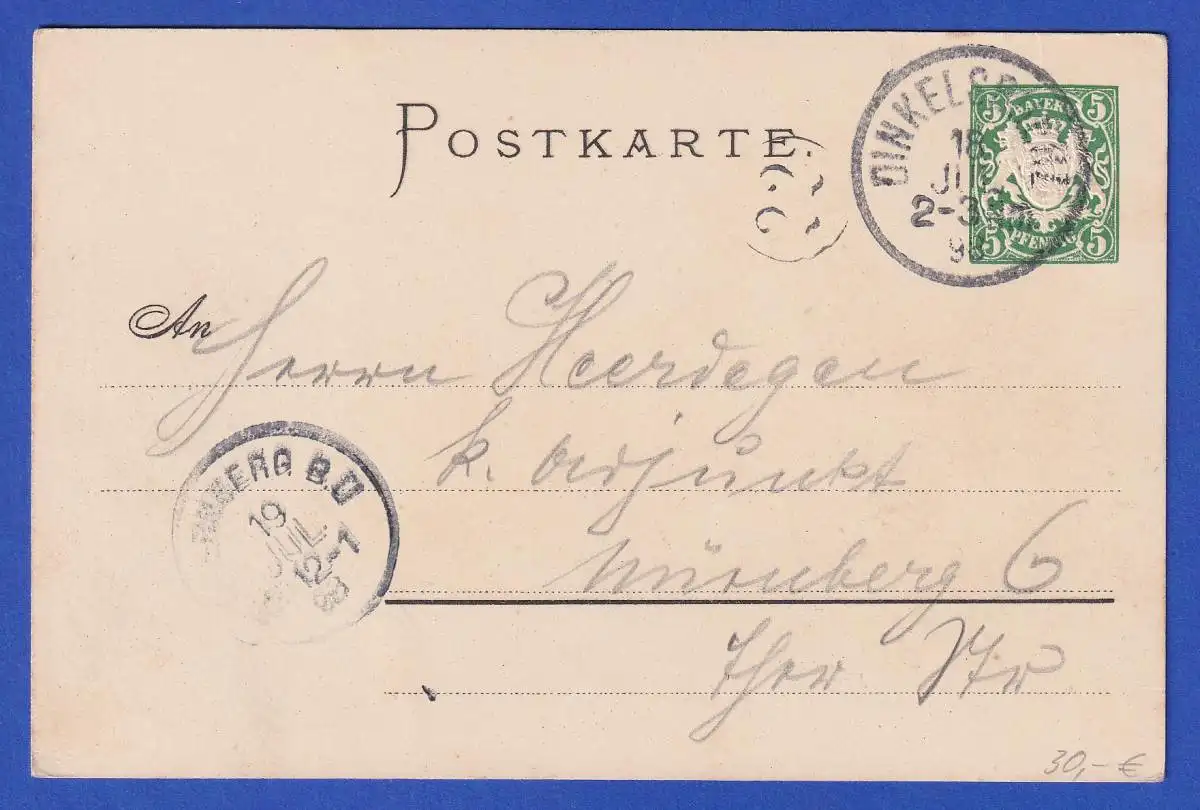 POSTKARTE.
DINKELSB
18
JUL
2-3
98
5 BAYERN 5
5 PFENNIG 5
An Herrn Heerdegen
k. Adjunkt
Nürnberg 6
Str
RNBERG B.
19
JUL
12-1
98
30,- €